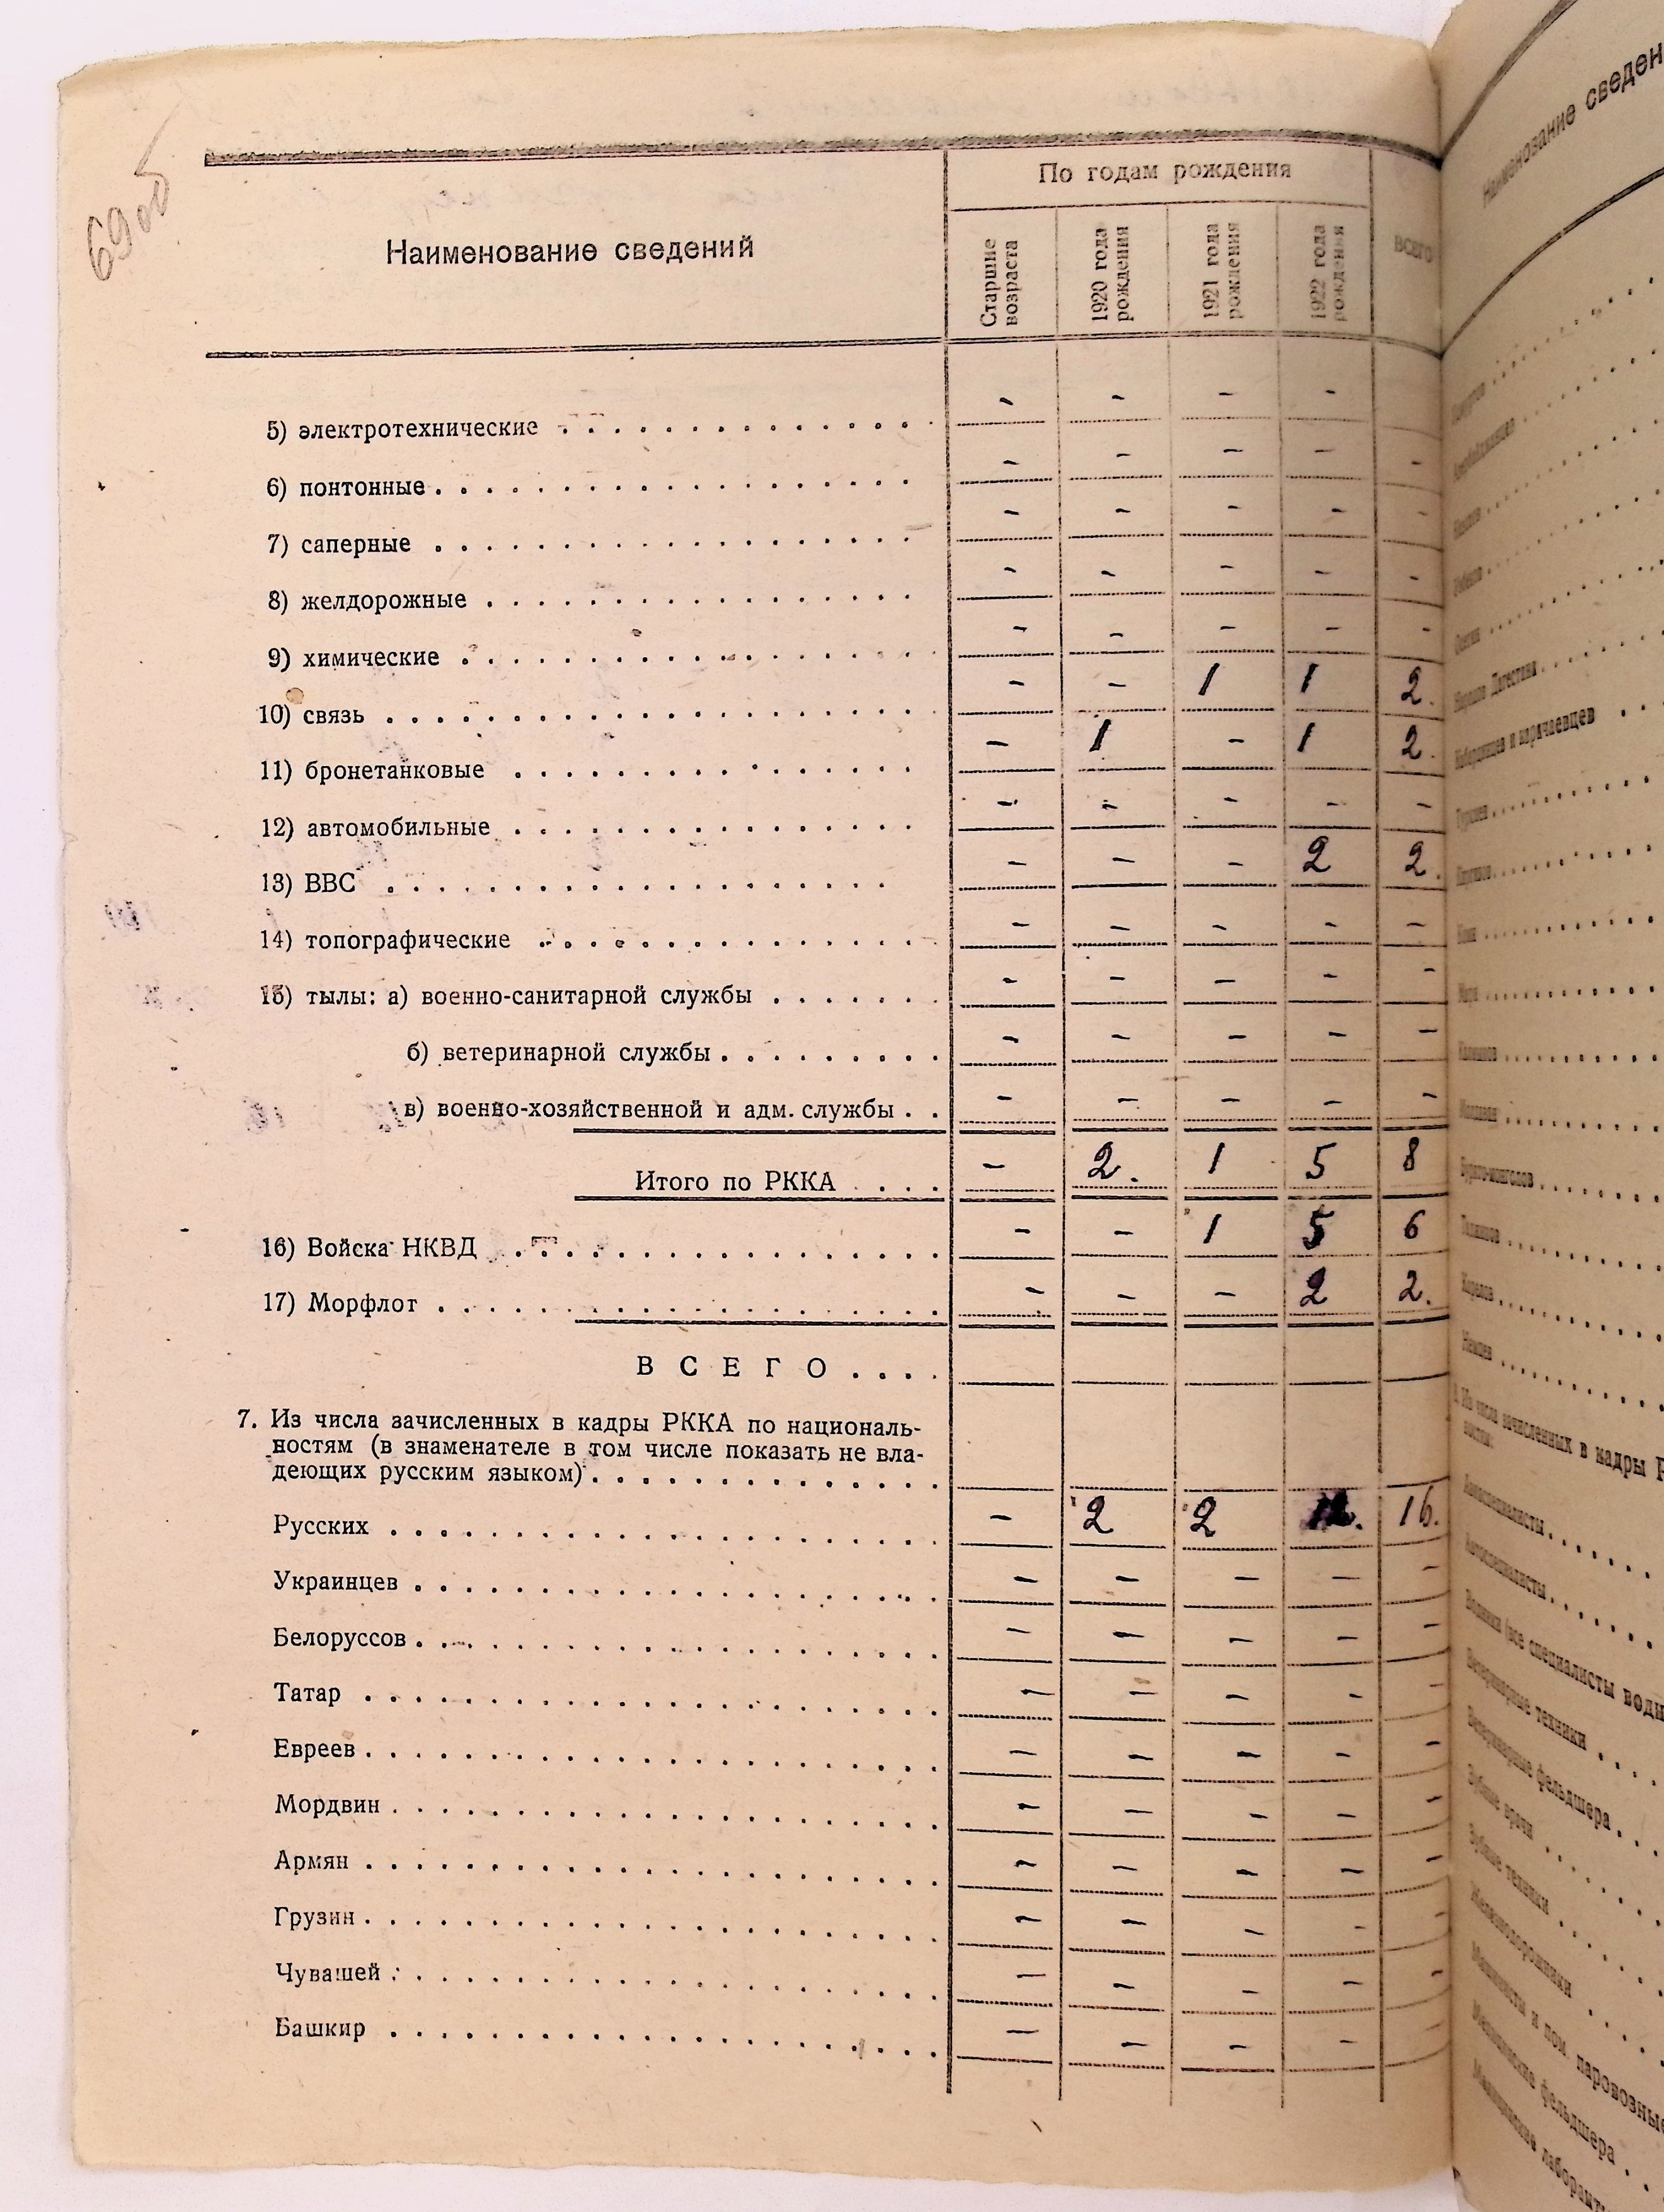 69 об
По годам рождения
Наименование сведений
Старшие возраста
1920 года рождения
1921 года рождения
1922 года рождения
ВСЕГО
5) электротехнические - - - -
6) понтонные - - - - -
7) саперные - - - - -
8) желдорожные - - - - -
9) химические - - - - -
10) связь - - 1 1 2.
11) бронетанковые - 1 - 1 2.
12) автомобильные - - - - -
13) ВВС - - - 2 2.
14) топографические - - - - -
15) тылы: а) военно-санитарной службы - - - - -
б) ветеринарной службы - - - - -
в) военно-хозяйственной и адм. службы - - - - -
Итого по РККА - 2. 1 5 8
16) Войска НКВД - - 1 5 6
17) Морфлот - - - 2 2.
ВСЕГО
7. Из числа зачисленных в кадры РККА по националь-
ностям (в знаменателе в том числе показать не вла-
деющих русским языком)
Русских - 2 2 12. 16.
Украинцев - - - - -
Белоруссов - - - - -
Татар - - - - -
Евреев - - - - -
Мордвин - - - - -
Армян - - - - -
Грузин - - - - -
Чувашей - - - - -
Башкир - - - - -
Наименование сведен
Народов Дагестана
Кабардинцев и карачаевцев
Туркмен
Киргизов
Коми
Мари
Калмыков
Молдаван
Бурято-монголов
Карелов
Немцев
Из числа зачисленных в кадры Р
Автоспециалисты
Водники (все специалисты водн
Ветеринарные техники
Ветеринарные фельдшера
Зубные врачи
Зубные техники
Железнодорожники
Машинисты и пом. паровозные
Медицинские фельдшера